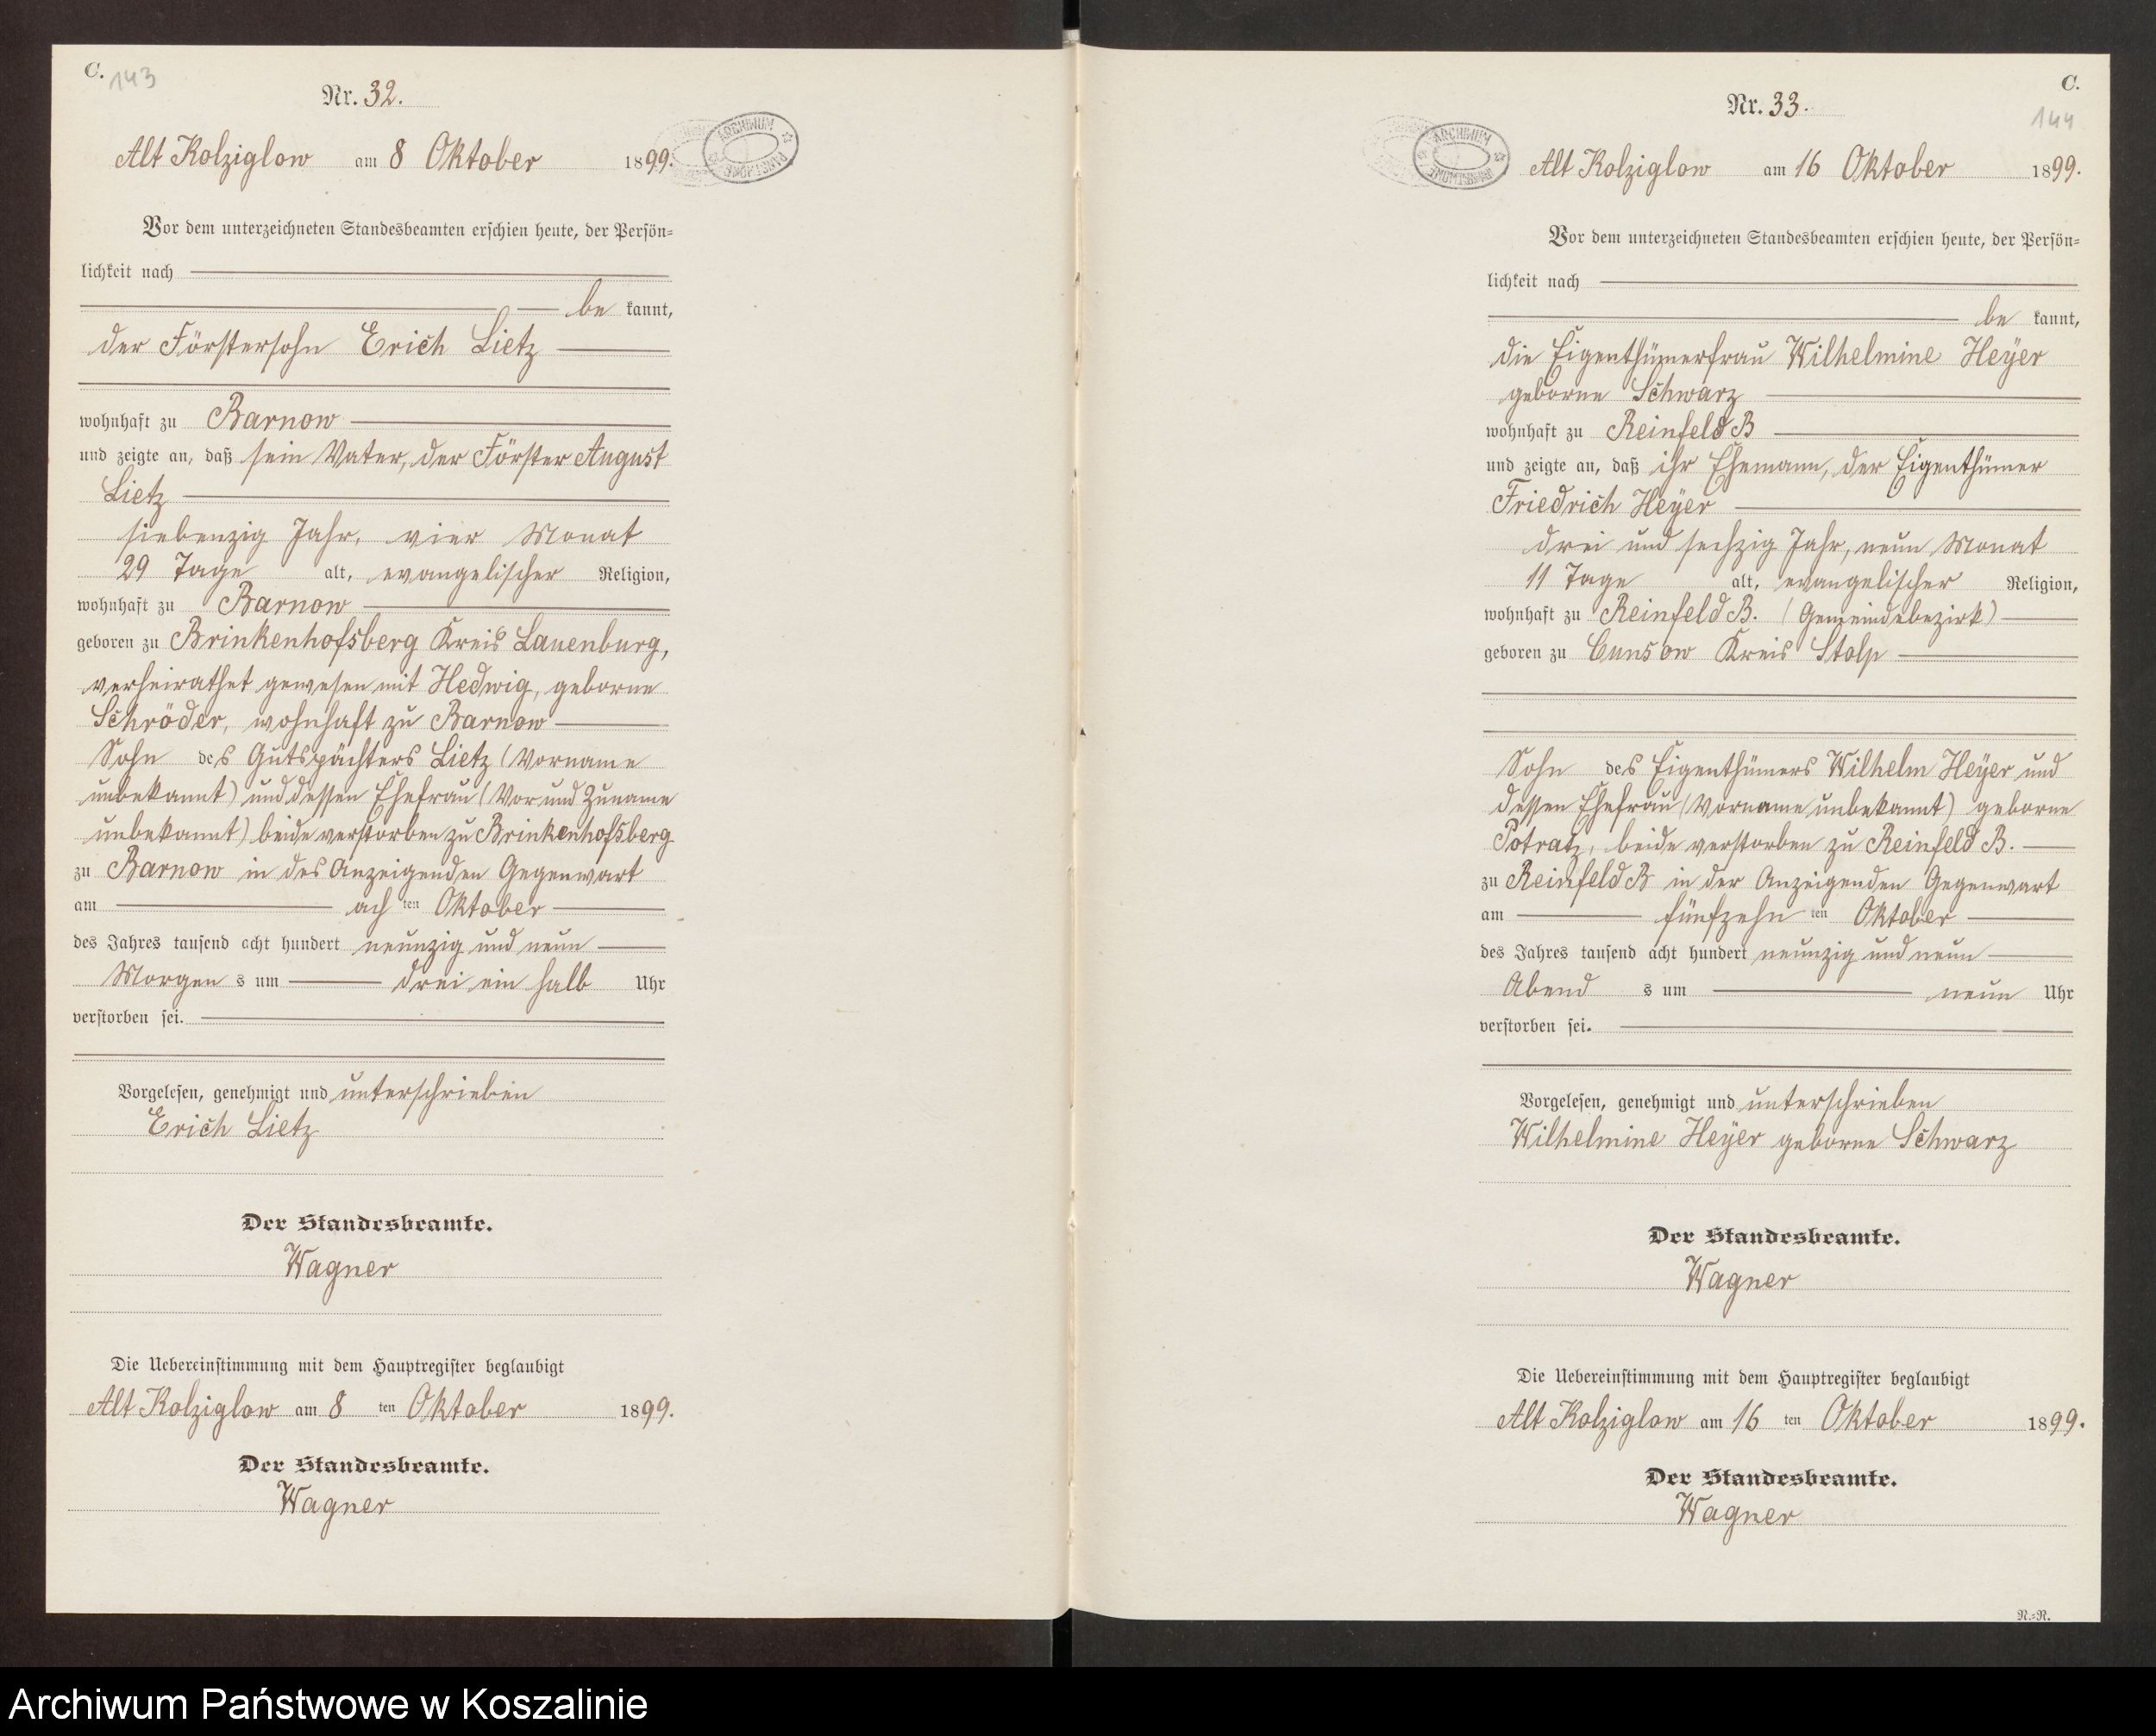 C. 143
Nr. 32.
Alt Kolziglow am 8 Oktober 1899.
ARCHIWUM
Vor dem unterzeichneten Standesbeamten erschien heute, der Persön=
lichkeit nach
be kannt,
der Förstersohn Erich Lietz
wohnhaft zu Barnow
und zeigte an, daß sein Vater, der Förster August
Lietz
siebenzig Jahr, vier Monat
29 Tage alt, evangelischer Religion,
wohnhaft zu Barnow
geboren zu Brinkenhofsberg Kreis Lauenburg,
verheirathet gewesen mit Hedwig, geborne
Schröder, wohnhaft zu Barnow
Sohn des Gutspächters Lietz (Vorname
unbekannt) und dessen Ehefrau (Vor und Zuname
unbekannt) beide verstorben zu Brinkenhofsberg
zu Barnow in des Anzeigenden Gegenwart
am ach ten Oktober
des Jahres tausend acht hundert neunzig und neun
Morgen s um drei ein halb Uhr
verstorben sei.
Vorgelesen, genehmigt und unterschrieben
Erich Lietz
Der Standesbeamte.
Wagner
Die Uebereinstimmung mit dem Hauptregister beglaubigt
Alt Kolziglow am 8 ten Oktober 1899.
Der Standesbeamte.
Wagner
C.
144
Nr. 33.
ARCHIWUM
Alt Kolziglow am 16 Oktober 1899.
Vor dem unterzeichneten Standesbeamten erschien heute, der Persön=
lichkeit nach
be kannt,
die Eigenthümerfrau Wilhelmine Heÿer
geborne Schwarz
wohnhaft zu Reinfeld B
und zeigte an, daß ihr Ehemann, der Eigenthümer
Friedrich Heÿer
drei und sechzig Jahr, neun Monat
11 Tage alt, evangelischer Religion,
wohnhaft zu Reinfeld B. (Gemeindebezirk)
geboren zu Cunsow Kreis Stolp
Sohn des Eigenthümers Wilhelm Heÿer und
dessen Ehefrau (Vorname unbekannt) geborne
Potratz, beide verstorben zu Reinfeld B.
zu Reinfeld B in der Anzeigenden Gegenwart
am fünfzehn ten Oktober
des Jahres tausend acht hundert neunzig und neun
Abend s um neun Uhr
verstorben sei.
Vorgelesen, genehmigt und unterschrieben
Wilhelmine Heÿer geborne Schwarz
Der Standesbeamte.
Wagner
Die Uebereinstimmung mit dem Hauptregister beglaubigt
Alt Kolziglow am 16 ten Oktober 1899.
Der Standesbeamte.
Wagner
N.=R.
Archiwum Państwowe w Koszalinie